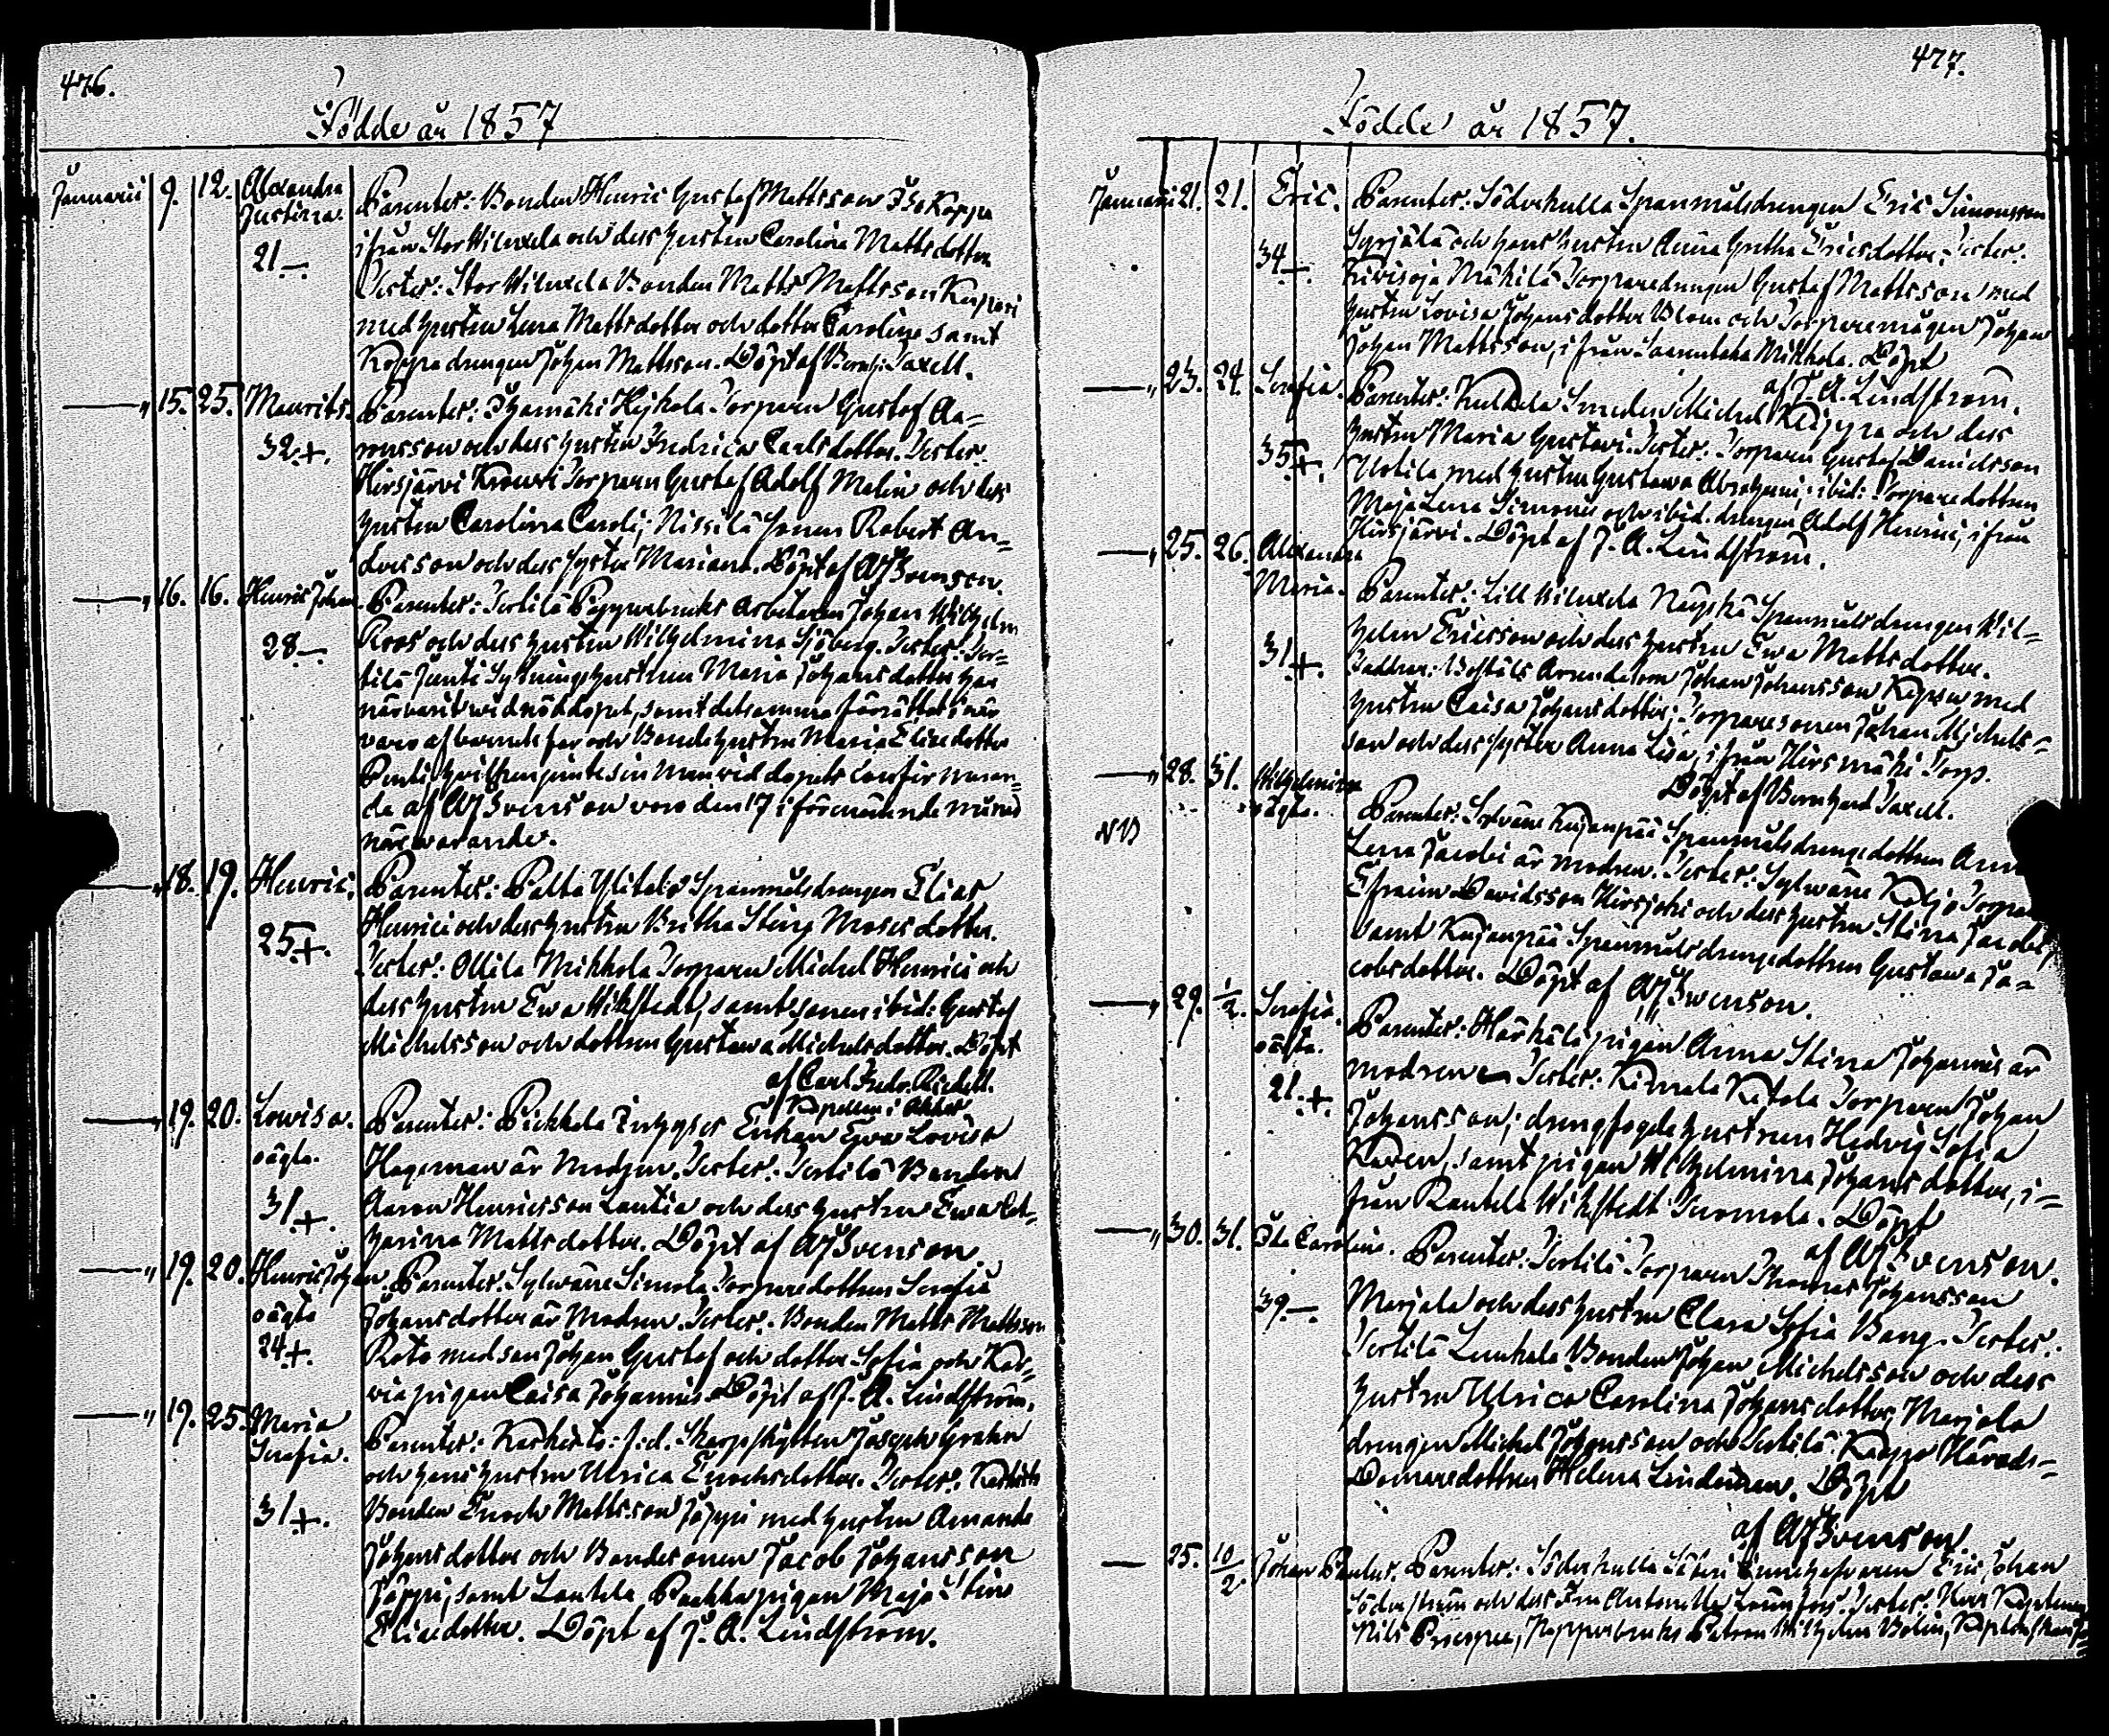 476.
Födde år 1857
Januarii 9. 12. Alexandra Justina. 21 —.
Parenter: Bonden Henric Gustaf Mattsson Iso Kappa
ifrån Stor Wiluxela och dess hustru Carolina Mattsdotter
Testes: Stor Wiluxela Bonden Matts Mattsson
med hustru Lena Mattsdotter och dotter Carolina samt
drengen Johan Mattsson. Döpt af Bernh: Taxell.
—„ 15. 25. Maurits. 32 +.
Parenter: Hyhola Torparen Gustaf Aa=
ronsson och dess hustru Fredrica Carlsdotter. Testes:
Hirsjärvi Torparen Gustaf Adolf Malin och dess
hustru Carolina Caroli; Nissilä sonen Robert An=
dersson och dess syster Mariana. Döpt af AJSvenson.
—„ 16. 16. Henric Johan. 28 —.
Parenter: Tertilä Pappersbruks Arbetaren Johan Wilhelm
Roos och dess hustru Wilhelmina Sjöberg. Testes: Ter=
tilä Junti hustrun Maria Johansdotter har
närvarit wid nöddopet, samt detsamma förrättat; när
voro af barnets far och Bondehustru Maria Eliædotter
Penti, hvilken jemte sin man vid dopets confirmeran=
de af AJSvenson voro den 17 i förenämnde månad
närwarande.
—„ 18. 19. Henric. 25 +.
Parenter: Palta Ylitalo Spanmålsdrengen Elias
Henrici och dess hustru Britha Stina Mosesdotter.
Testes: Ollila Mikkola Torparen Michel Henrici och
dess hustru Ewa Wikstedt, samt sonen ibid: Gustaf
Michelsson och dottren Gustawa Michelsdotter. Döpt
af Carl Fredr. Riedell.
—„ 19. 20. Lowisa. oägta. 31 +.
Parenter: Pickkala Enkan Ewa Lovisa
Hageman är Modren. Testes: Tertilä Bonden
Aaron Henricsson Lautia och dess hustru Ewa Cat=
harina Mattsdotter. Döpt af AJSvenson
—„ 19. 20. Henric Johan. oägta 24 +.
Parenter: Sylwäne Simola Torparedottren Serafia
Johansdotter är Modren. Testes: Bonden Matts Mattsson
Rota med son Johan Gustaf och dotter Sofia och Kar=
via pigan Caisa Johannis. Döpt af J. A. Lindström.
—„ 19. 25. Maria Serafia. 31 +.
Parenter: Karkisto: f.d. Skarpskytten Joseph Grahn
och hans hustru Ulrica Enochsdotter. Testes: Karkisto
Bonden Enoch Mattsson Jöppi med hustru Amanda
Johansdotter och Bondesonen Jacob Johansson
Jöppi, samt Lautela Paakka pigan Maja Stina
Eliædotter. Döpt af J. A. Lindström.
477.
Födde år 1857.
Januari 21. 21. Eric. 34 —.
Parenter: Söderkulla Spanmålsdrengen Eric Simonsson
Syrjälä och hans hustru Anna Gretha Ericsdotter; Testes:
Kivioja Mäkilä Torparedrengen Gustaf Mattsson med
hustru Lovisa Johansdotter Blom och Torparemågen Johan
Johan Mattsson, ifrån Mikkola. Döpt
af J. A. Lindström.
—„ 23. 24. Serafia. 35 +.
Parenter: Smeden Michel och dess
hustru Maria Gustavi. Testes: Torparen Gustaf Danielsson
Uotila med hustru Gustawa Abrahami; ibid: Torparedottren
Maja Lena Simonis och ibid. drengen Adolf Henrici, ifrån
Hirsjärvi. Döpt af J. A. Lindström.
—„ 25. 26. Alexandra Maria. 31 +.
Parenter: Lill Wiluxela Näyskä Spanmålsdrengen Wil=
helm Ericsson och dess hustru Ewa Mattsdotter.
Faddrar: Arrendatorn Johan Johansson med
hustru Caisa Johansdotter; Torparesonen Johan Michels=
son och dess syster Anna Lisa, ifrån Hirsmäki Torp.
Döpt af Bernhard Taxell.
—„ 28. 31. Wilhelmina oägta.
NB
Parenter: Sylväne Kujanpää Spanmålsdrengedottren Anna
Lena Jacobi är modren. Testes: Sylwäne Torparen
Efraim Davidsson Hirsjoki och dess hustru Stina
samt Kujanpää Spanmålsdrengedottren Gustawa Ja=
cobsdotter. Döpt af AJSwenson.
—„ 29. 1/2. Serafia. oägta. 21. +.
Parenter: Härkälä pigan Anna Stina Johannis är
modren. Testes: Kimala Ketola Torparen Johan
Johansson; drengfogdehustrun Hedvig Sofia
Karen, samt pigan Wilhelmina Johansdotter, i=
från Rantala Wikstedt Tuomola. Döpt
af AJSvenson.
—„ 30. 31. Ida Carolina. 39 —.
Parenter: Tertilä Torparen Thomas Johansson
Marjala och dess hustru Clara Sofia Bang. Testes:
Tertilä Lunkala Bonden Johan Michelsson och dess
hustru Ulrica Carolina Johansdotter, Marjala
drengen Michel Johansson och Tertilä Kappo Härads=
Domaredottren Helena Lindeman. Döpt
af AJSvenson.
— 25. 10/2. Johan Paulus.
Parenter: Söderkulla Säteri Innehafvaren Eric Johan
Söderström och dess Fru Antonette Testes: Herr Kaptenen
Nils Procopee, Kopparbruks Patron Wilhelm Bolin,